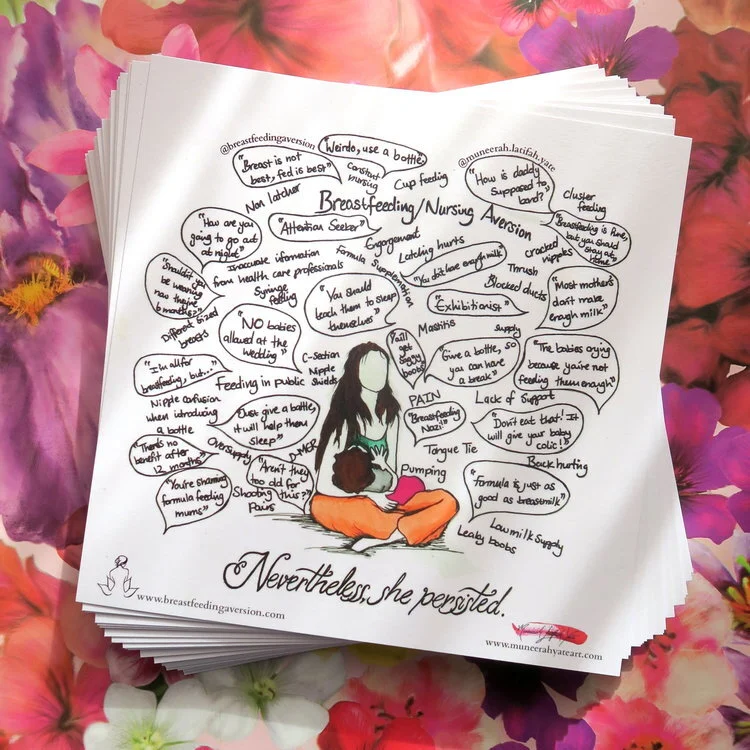 @breastfeedingaversion
"Weirdo, use a bottle"
@muneerah.latifah.yate
"Breast is not
best, fed is best"
Constant
nursing
Cup feeding
"How is daddy
supposed to
bond?"
Cluster
feeding
Non latcher
Breastfeeding/Nursing Aversion
"How are you
going to go out
at night"
"Attention Seeker"
Engorgement
Latching hurts
cracked
nipples
"Breastfeeding is Pure,
but you should
stay at
home"
Inaccurate information
from health care professionals
Formula Supplementation
"You don't have enough milk"
Thrush
Blocked ducts
"Shouldn't you
be weaning
now they're
6 months?"
Syringe
feeding
"You should
teach them to sleep
themselves"
"Exhibitionist"
"Most mothers
don't make
enough milk"
Different sized
breasts
"NO babies
allowed at the
wedding"
Mastitis
Supply
"I'm all for
breastfeeding, but..."
C-section
Nipple
Shields
"You'll
get
saggy
boobs"
"Give a bottle, so
you can have
a break"
"The babies crying
because you're not
feeding them enough"
Feeding in public
PAIN
Lack of Support
Nipple confusion
when introducing
a bottle
"Just give a bottle,
it will help them
sleep"
"Breastfeeding
Nazi!"
"Don't eat that! It
will give your baby
colic!"
"There's no
benefit after
12 months"
Oversupply
D-MER
Tongue Tie
Back hurting
"You're shaming
formula feeding
mums"
"Aren't they
too old for
this?"
Shooting
Pains
Pumping
"Formula is just as
good as breastmilk"
Low milk supply
Leaky boobs
Nevertheless, she persisted.
www.breastfeedingaversion.com
www.muneerahyateart.com